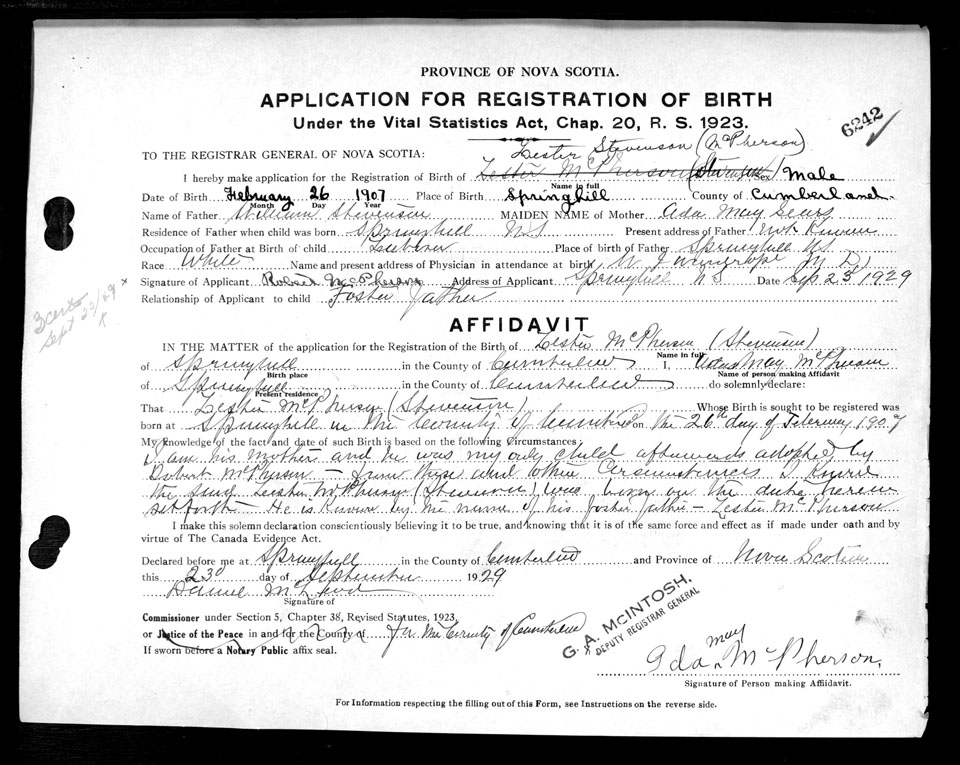 PROVINCE OF NOVA SCOTIA.
APPLICATION FOR REGISTRATION OF BIRTH
Under the Vital Statistics Act, Chap. 20, R. S. 1923.
6242
Lester Stevenson (McPherson)
TO THE REGISTRAR GENERAL OF NOVA SCOTIA:
I hereby make application for the Registration of Birth of Lester McPherson (Stevenson) Sex Male
Name in full
Date of Birth February 26 1907 Place of Birth Springhill County of Cumberland
Month Day Year
Name of Father William Stevenson MAIDEN NAME of Mother Ada May Sears
Residence of Father when child was born Springhill NS Present address of Father Not Known
Occupation of Father at Birth of child Laborer Place of birth of Father Springhill NS
Race White Name and present address of Physician in attendance at birth M D
x Signature of Applicant Robert McPherson Address of Applicant Springhill N S Date Sep 23 1929
Relationship of Applicant to child Foster Father
3 certs
Sept 23/29
K
AFFIDAVIT
IN THE MATTER of the application for the Registration of the Birth of Lester McPherson (Stevenson)
Name in full
of Springhill in the County of Cumberland I, Ada May McPherson
Birth place Name of person making Affidavit
of Springhill in the County of Cumberland do solemnly declare:
Present residence
That Lester McPherson (Stevenson) Whose Birth is sought to be registered was
born at Springhill in the County of Cumberland on the 26th day of February 1907
My knowledge of the fact and date of such Birth is based on the following Circumstances:
I am his mother and he was my only child afterwards adopted by
Robert McPherson – from these and other Circumstances I know
the said Lester McPherson (Stevenson) was born on the date herein
set forth – He is known by the name of his foster father – Lester McPherson
I make this solemn declaration conscientiously believing it to be true, and knowing that it is of the same force and effect as if made under oath and by
virtue of The Canada Evidence Act.
Declared before me at Springhill in the County of Cumberland and Province of Nova Scotia
this 23d day of September 1929
McLeod
Signature of
Commissioner under Section 5, Chapter 38, Revised Statutes, 1923,
or Justice of the Peace in and for the County of J.P. the County of Cumberland
If sworn before a Notary Public affix seal.
G. A. MCINTOSH,
DEPUTY REGISTRAR GENERAL
Ada May McPherson
Signature of Person making Affidavit.
For Information respecting the filling out of this Form, see Instructions on the reverse side.